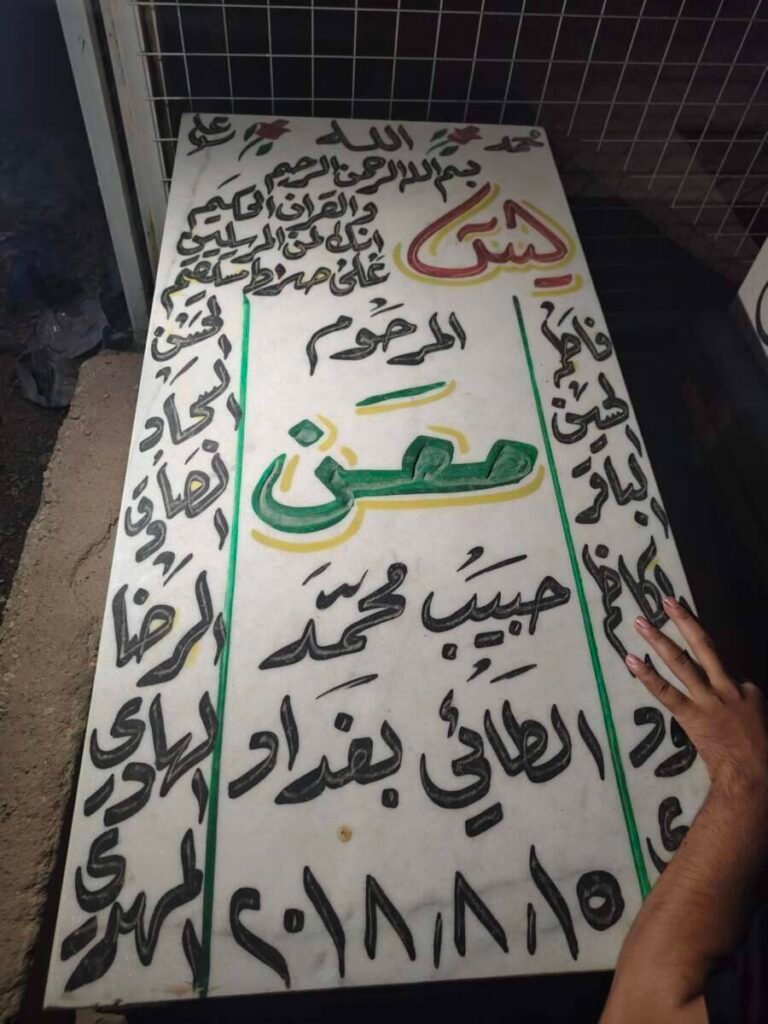 محمد الله علي
بسم الله الرحمن الرحيم
يس
والقرآن الحكيم
انك لمن المرسلين
على صراط مستقيم
المرحوم
معن
حبيب محمد
الطائي بغداد
٢٠١٨/٨/١٥
فاطمة
الحسين
الباقر
الكاظم
الحسن
السجاد
الصادق
الرضا
الهادي
المهدي